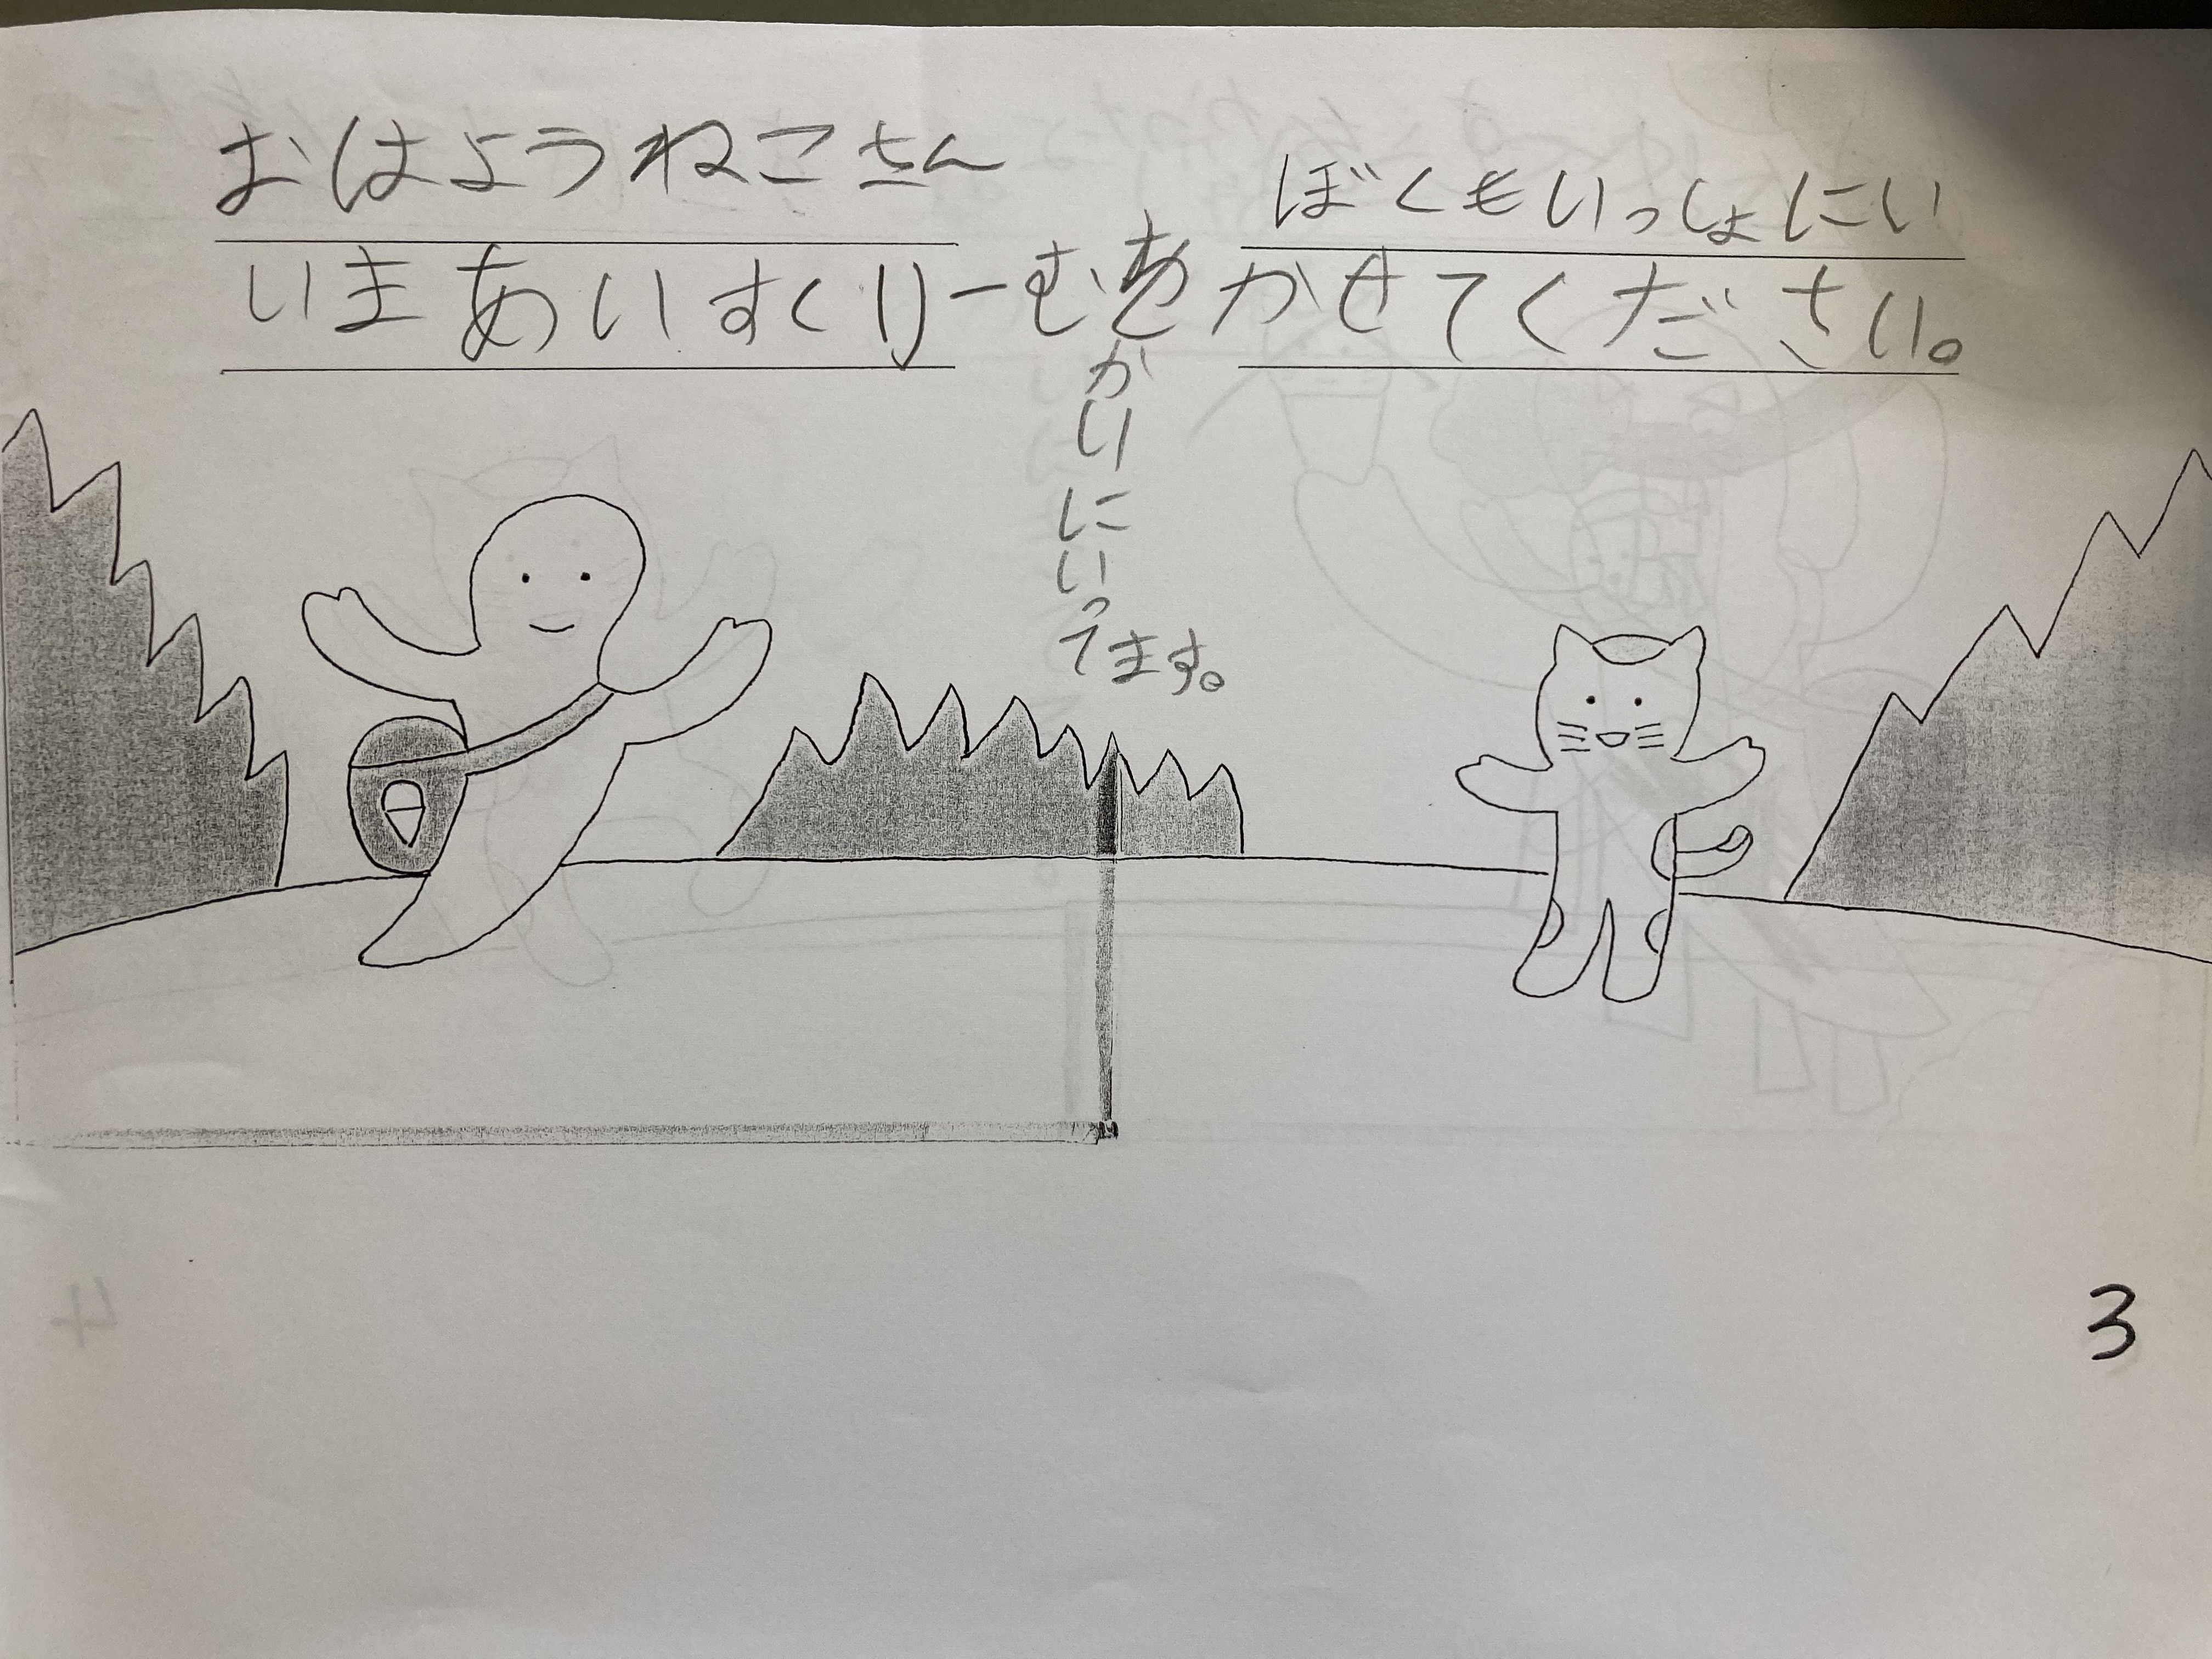 おはようねこさん
いまあいすくりーむを
かいにいってます。
ぼくもいっしょにい
かせてください。
3